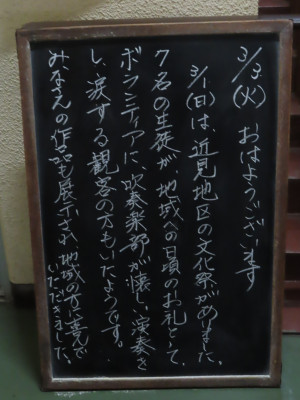 3/3(火) おはようございます
3/1(日)は、近見地区の文化祭がありました。
7名の生徒が、地域への日頃のお礼として、
ボランティアに、吹奏楽部が懐しい演奏を
し、涙する観客の方もいたようです。
みなさんの作品も展示され、地域の方に喜んで
いただきました。